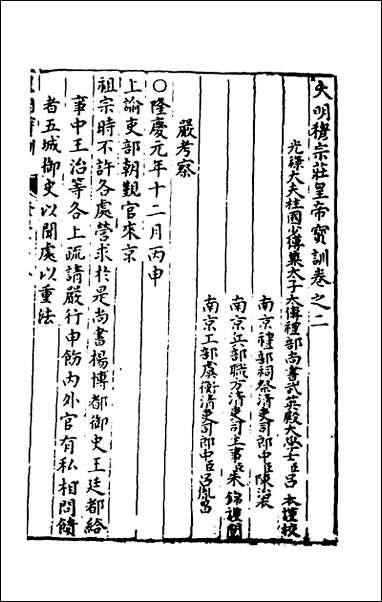 大明穆宗莊皇帝寳訓卷之二
光祿大夫柱國少傅兼太子太傅禮部尚書武英殿大學士臣呂 本謹校
南京禮部祠祭清吏司郎中臣陳治表
南京兵部職方清吏司主事臣朱 錦謹閱
南京工部虞衡清吏司郎中臣呂胤昌
嚴考察
○隆慶元年十二月丙申
上諭吏部朝覲官來京
祖宗時不許各處營求於是尚書楊博都御史王廷都給
事中王治等各上疏請嚴行申飭內外官有私相問饋
者五城御史以聞處以重法